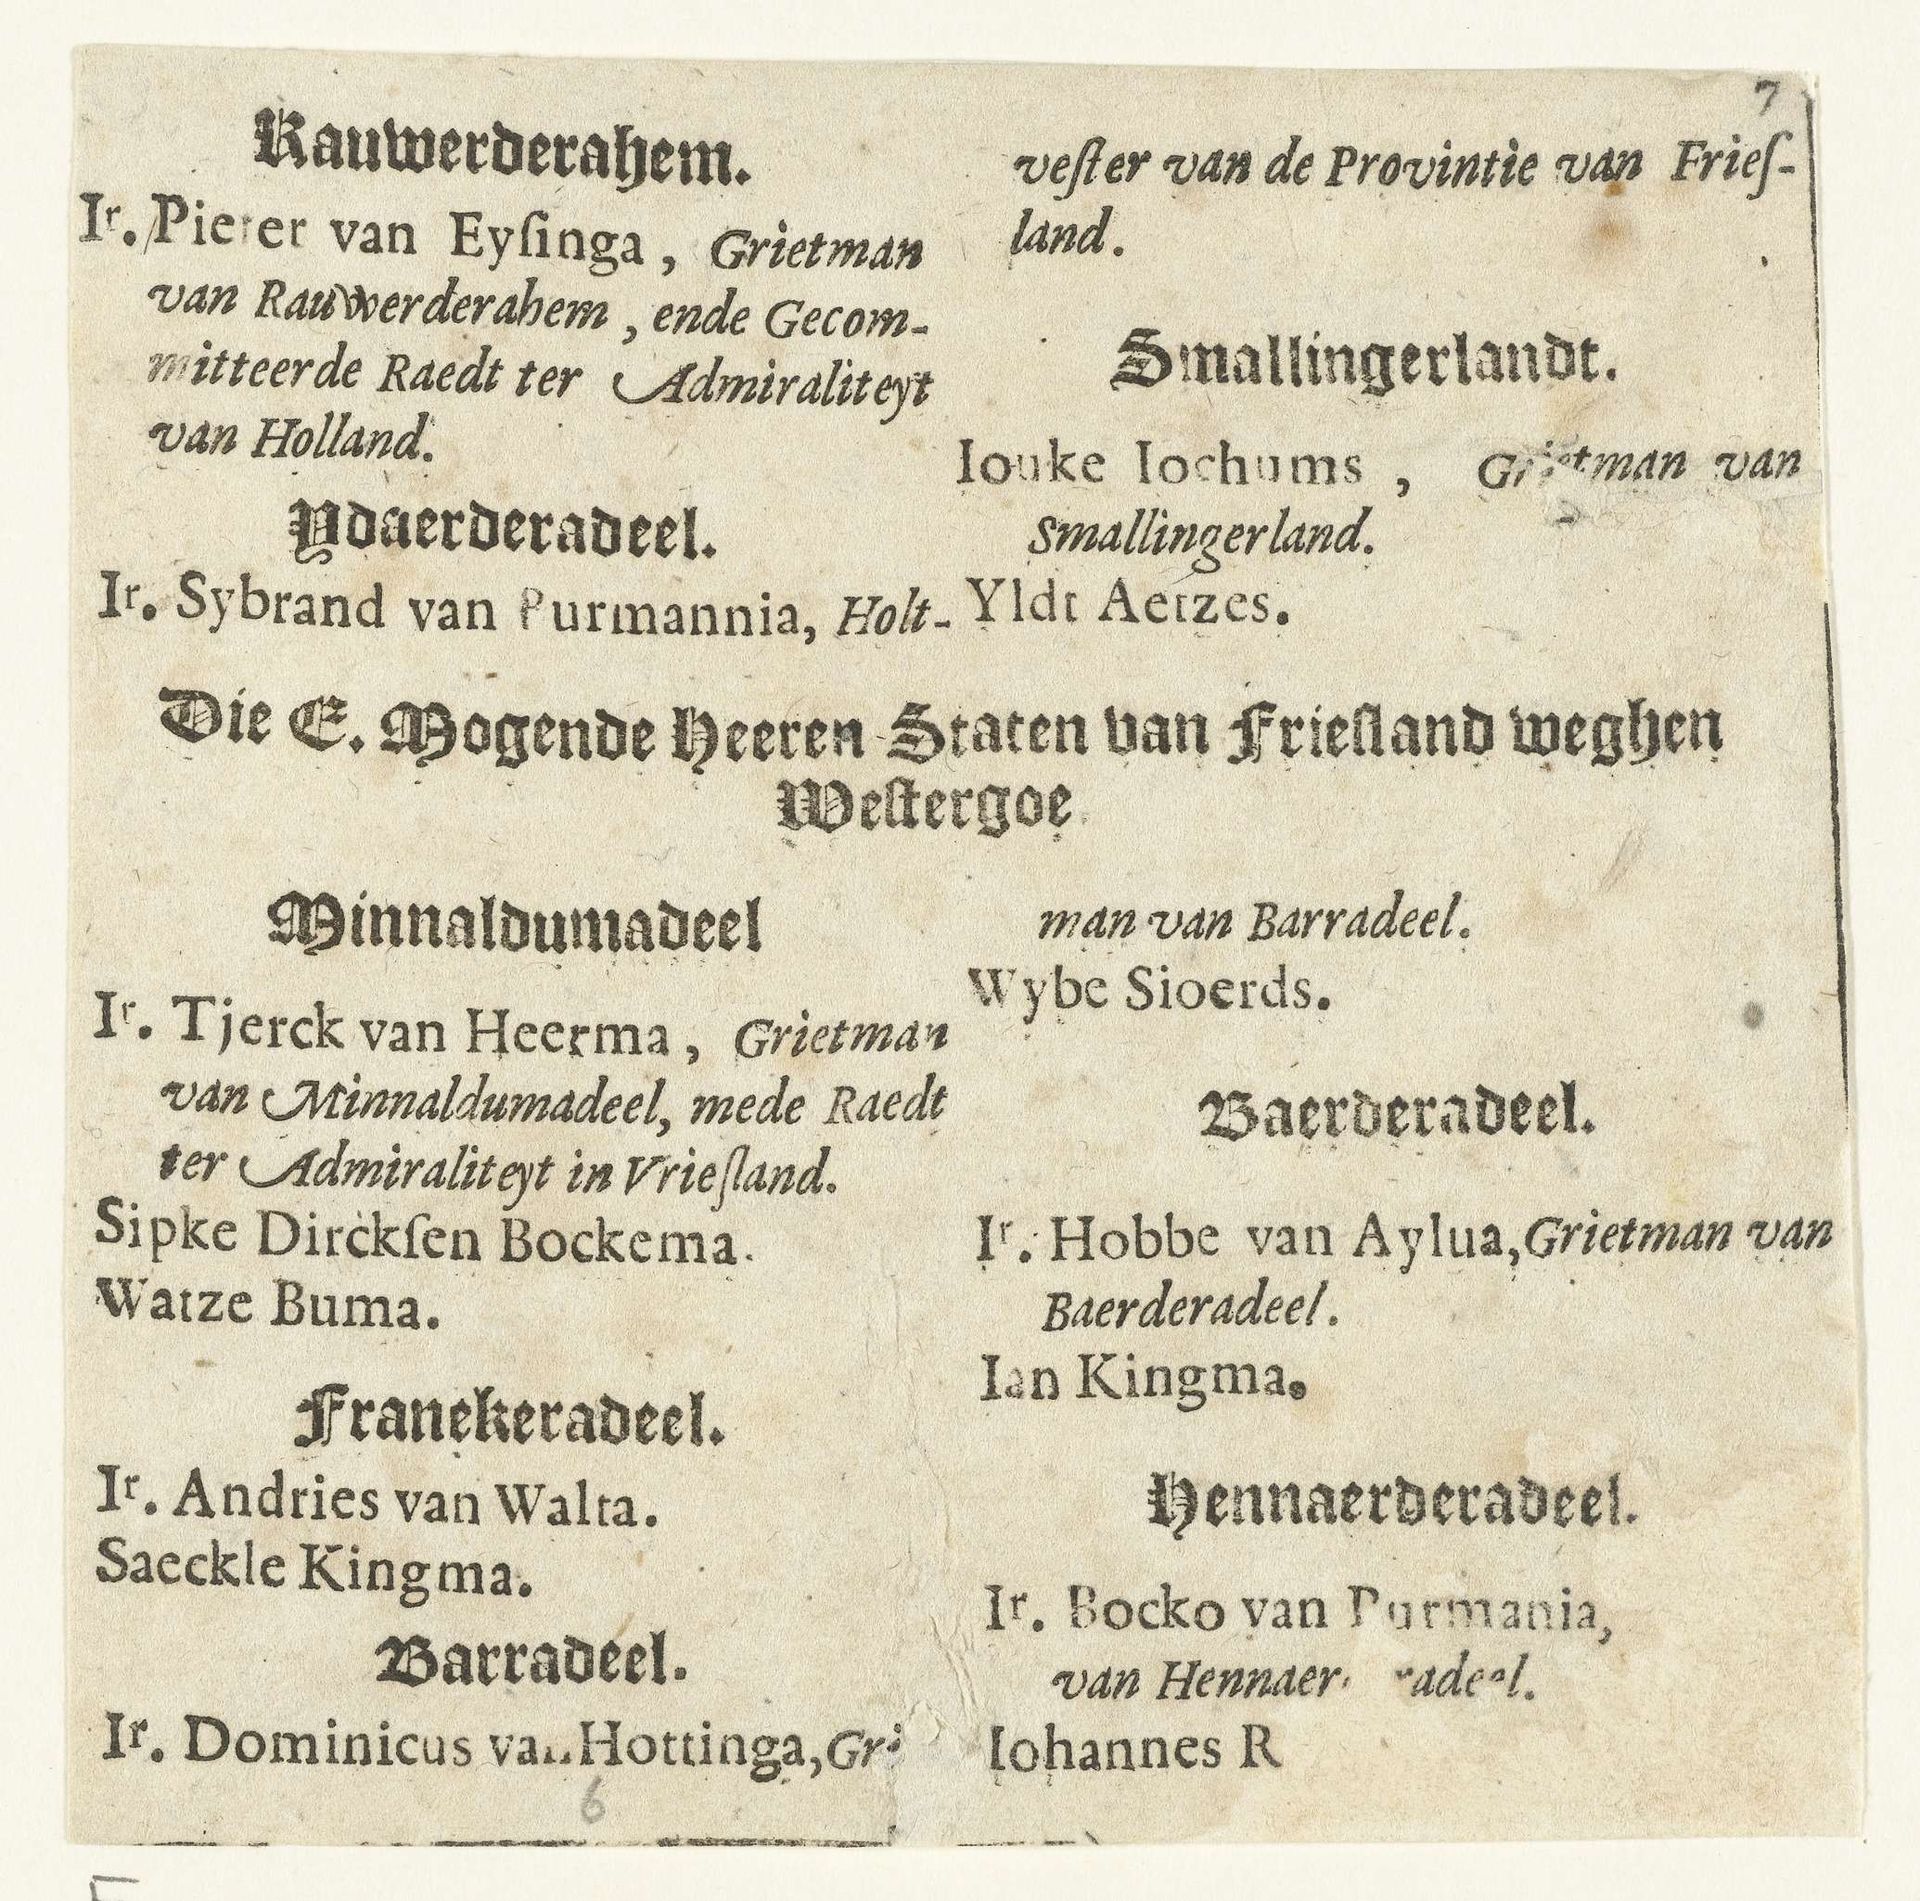 7
Rauwerderahem.
Ir. Pieter van Eyſinga, Grietman
van Rauwerderahem, ende Gecom-
mitteerde Raedt ter Admiraliteyt
van Holland.
Ydaerderadeel.
Ir. Sybrand van Purmannia, Holt-
veſter van de Provintie van Frieſ-
land.
Smallingerlandt.
Iouke Iochums, Grietman van
Smallingerland.
Yldt Aetzes.
Die E. Mogende Heeren Staten van Frieſland weghen
Weſtergoe.
Minnaldumadeel
Ir. Tjerck van Heerma, Grietman
van Minnaldumadeel, mede Raedt
ter Admiraliteyt in Vrieſland.
Sipke Dirckſen Bockema.
Watze Buma.
Franekeradeel.
Ir. Andries van Walta.
Saeckle Kingma.
Barradeel.
Ir. Dominicus van Hottinga,
man van Barradeel.
Wybe Sioerds.
Baerderadeel.
Ir. Hobbe van Aylua, Grietman van
Baerderadeel.
Ian Kingma.
Hennaerderadeel.
Ir. Bocko van Purmania,
van
Iohannes R
6